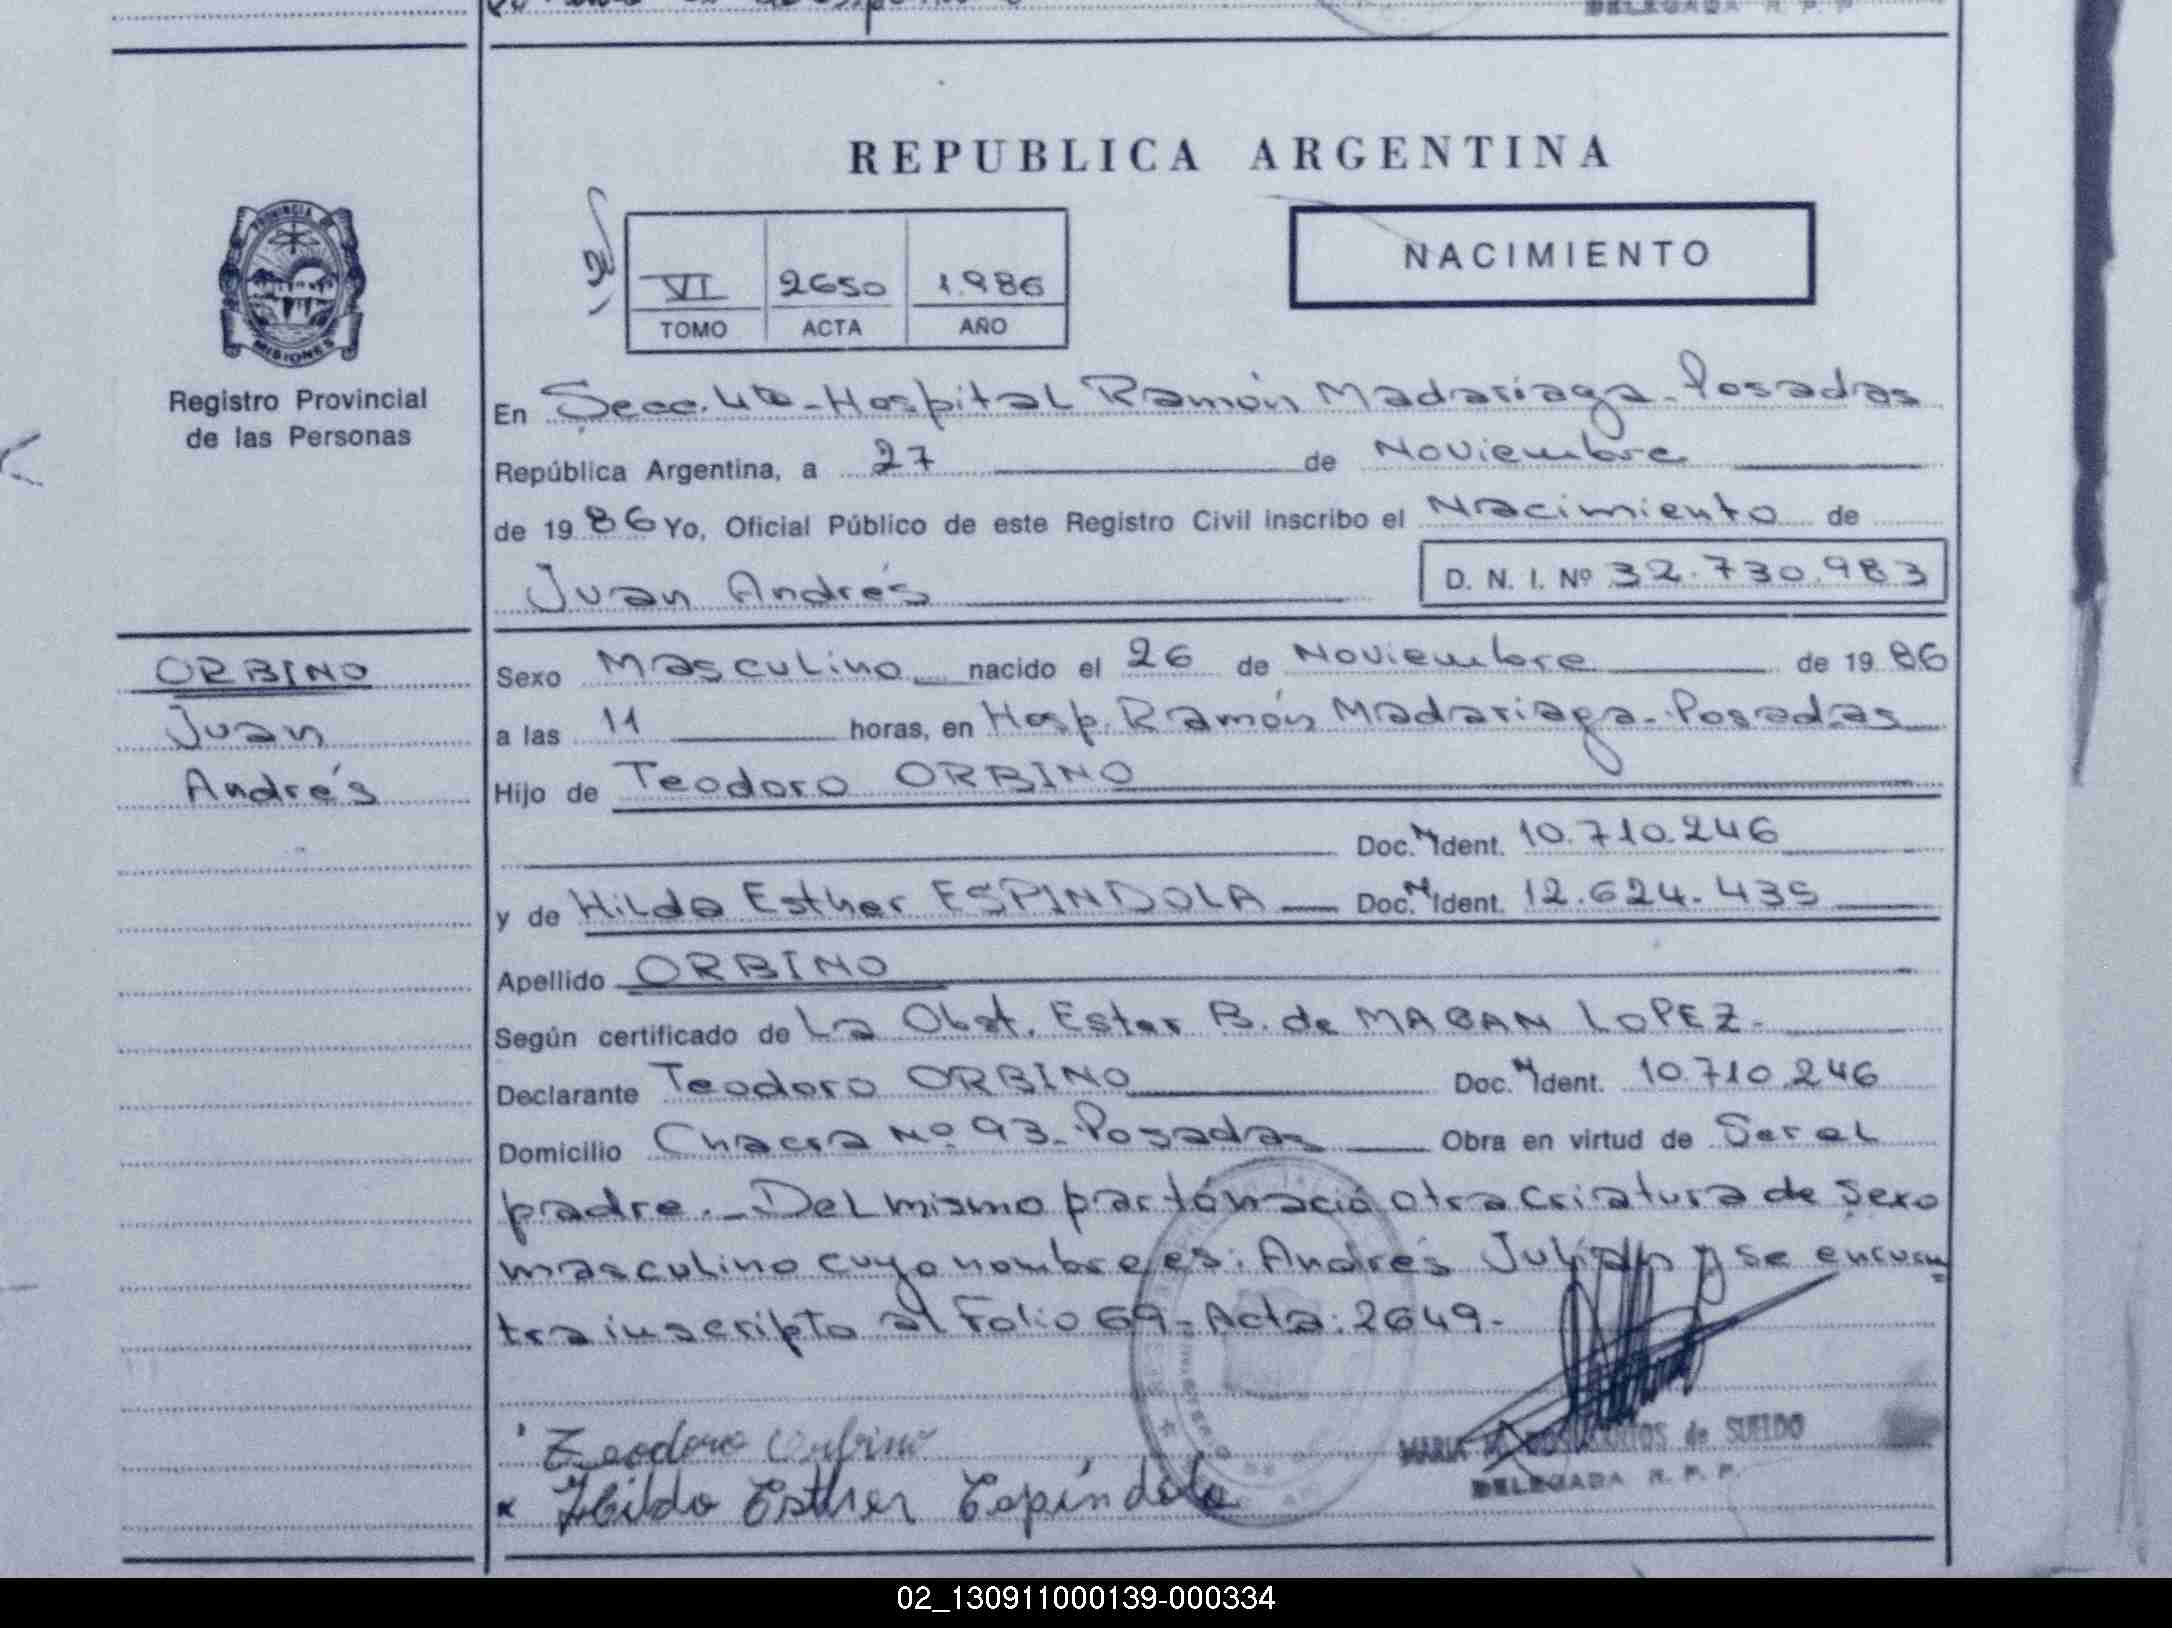 REPUBLICA ARGENTINA
PROVINCIA DE
MISIONES
Registro Provincial
de las Personas
VI 2650 1.986
TOMO ACTA AÑO
NACIMIENTO
En Secc. 4ta - Hospital Ramón Madariaga - Posadas
República Argentina, a 27 de Noviembre
de 1986 Yo, Oficial Público de este Registro Civil inscribo el Nacimiento de
Juan Andrés D. N. I. Nº 32.730.983
ORBINO
Juan
Andrés
Sexo Masculino nacido el 26 de Noviembre de 1986
a las 11 horas, en Hosp. Ramón Madariaga - Posadas
Hijo de Teodoro ORBINO
Doc. N Ident. 10.710.246
y de Hilda Esther ESPINDOLA Doc. N Ident. 12.624.435
Apellido ORBINO
Según certificado de La Obst. Ester B. de MAGAN LOPEZ.
Declarante Teodoro ORBINO Doc. N Ident. 10.710.246
Domicilio Chacra Nº 93 - Posadas Obra en virtud de Ser el
padre. - Del mismo parto nació otra criatura de sexo
masculino cuyo nombre es: Andrés Julián y se encuen
tra inscripto al Folio 69 - Acta: 2649.
Teodoro Orbino
x Hilda Esther Espíndola
MARIA de SUELDO
DELEGADA R. P. P.
DELEGADA R. P. P.
02_130911000139-000334